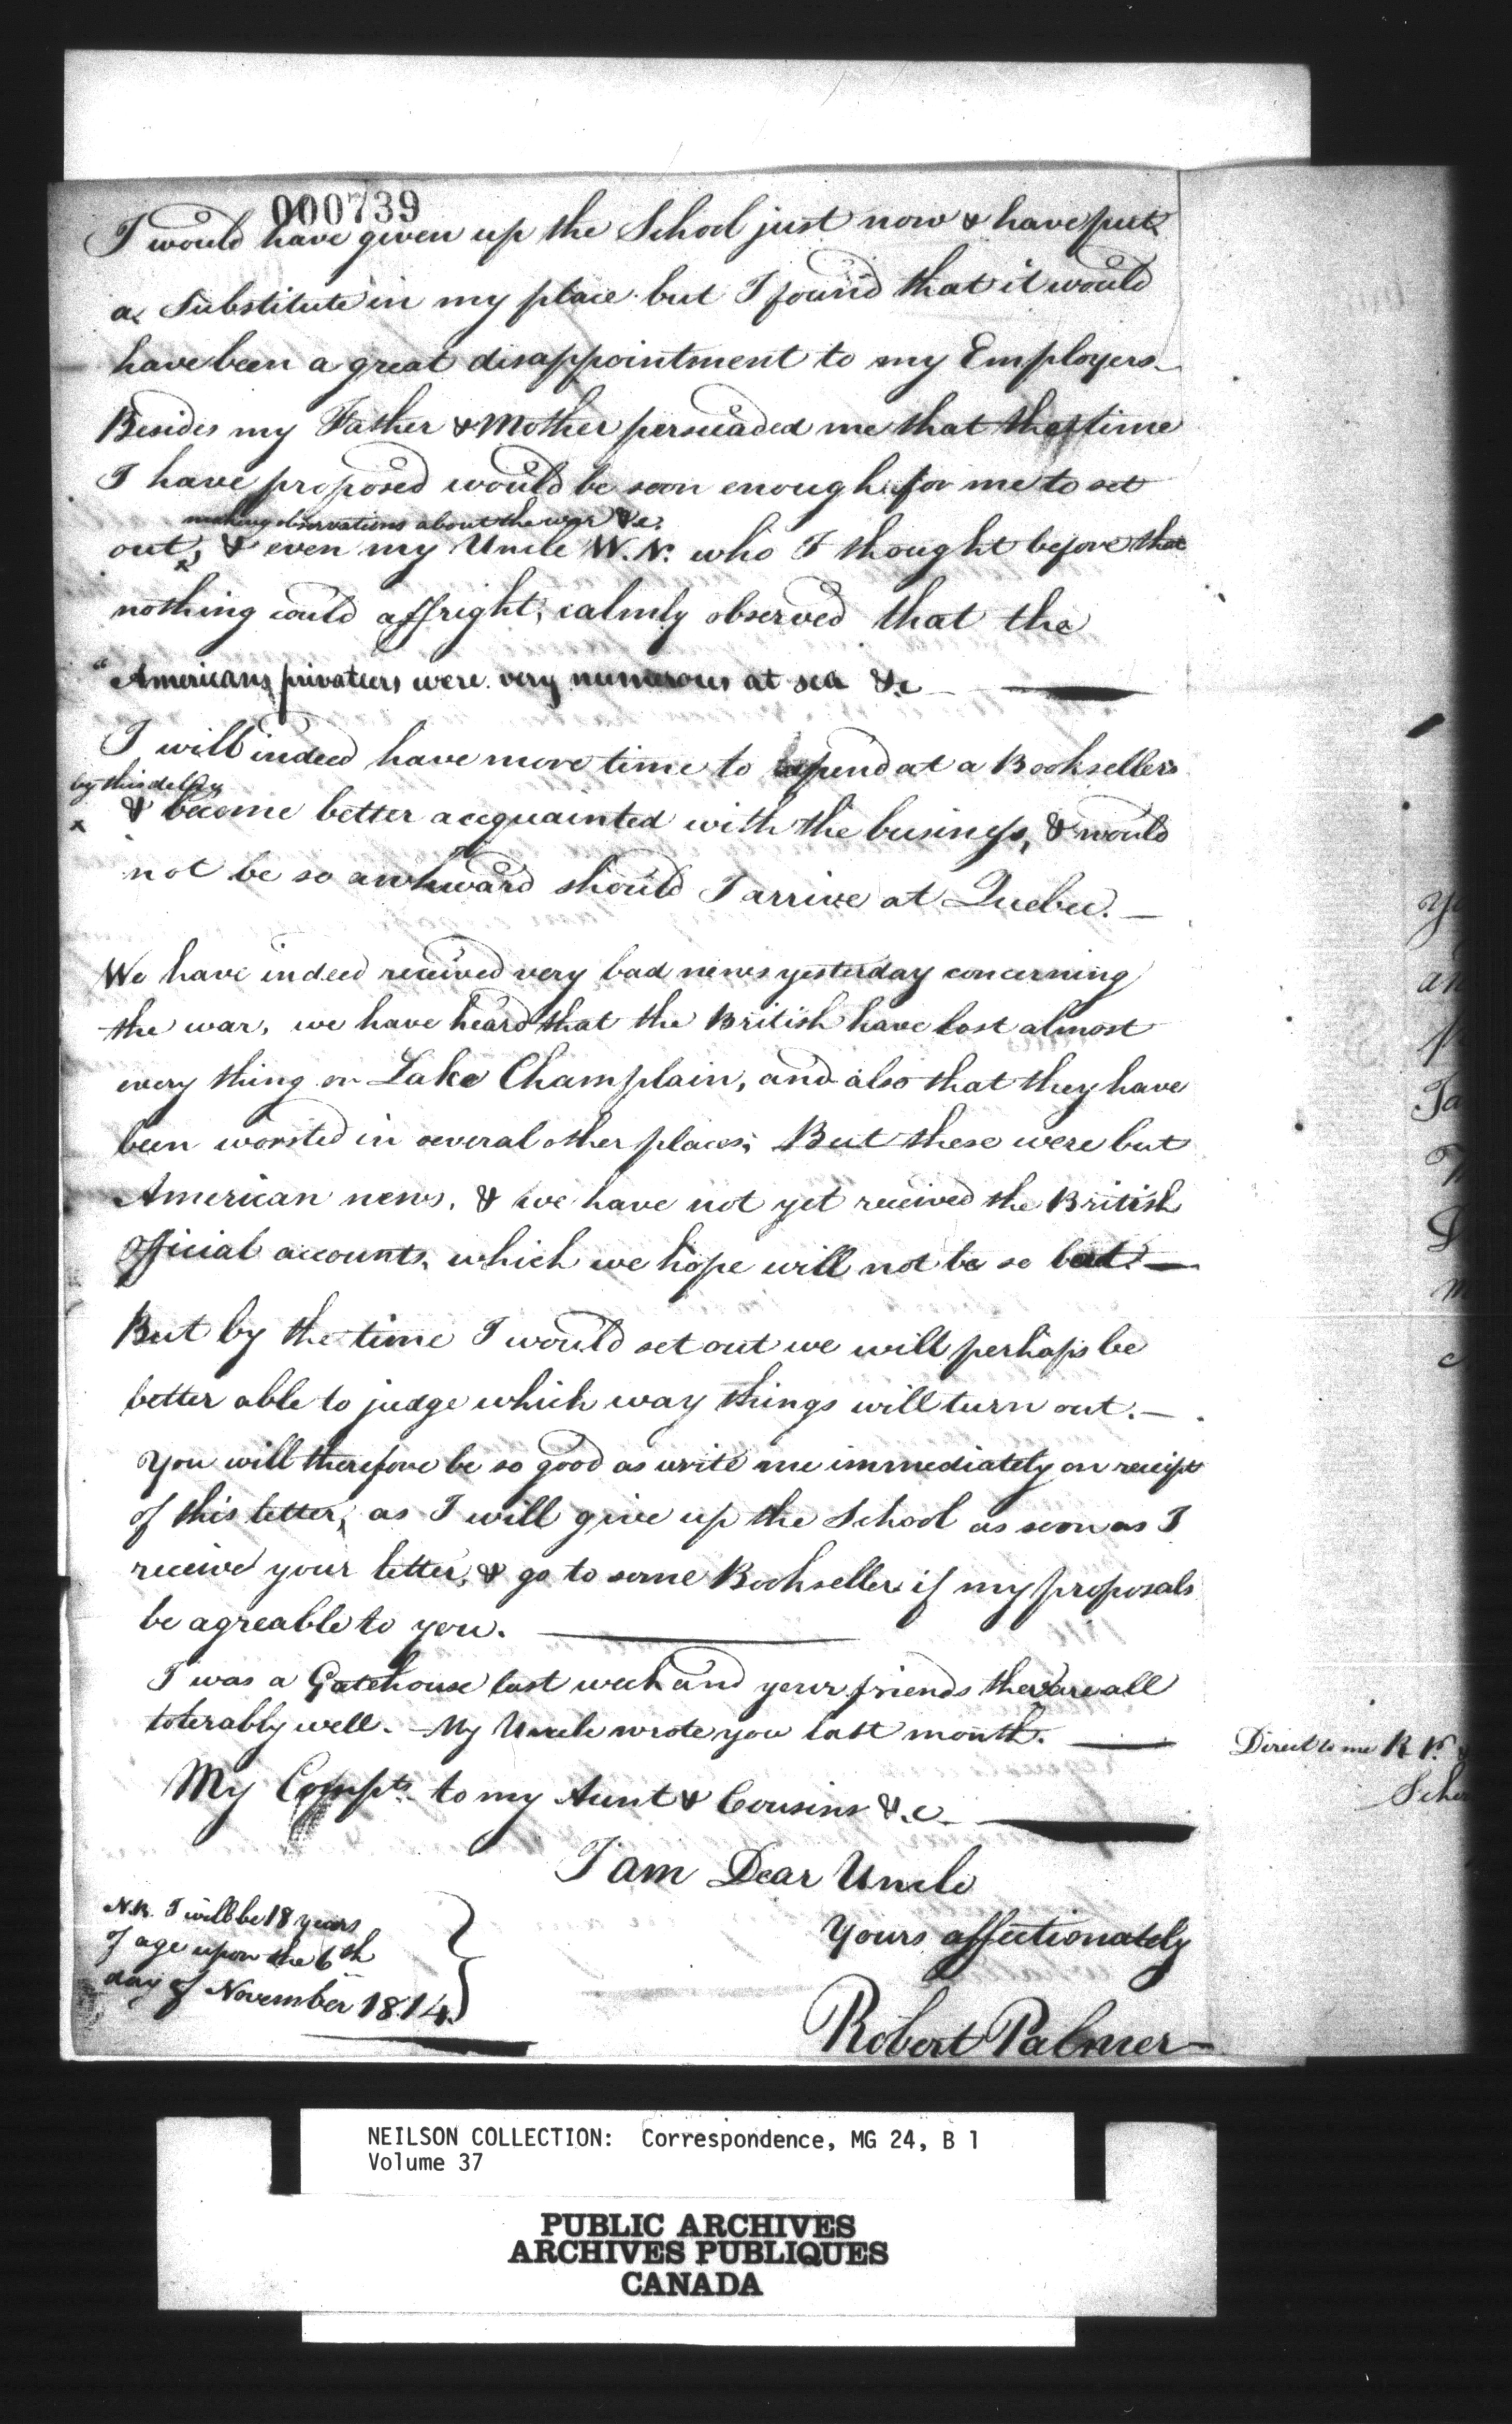 000739
I would have given up the School just now & have put
a Substitute in my place but I found that it would
have been a great disappointment to my Employers
Besides my Father & Mother persuaded me that the time
I have proposed would be soon enough for me to set
making observations about the war &c.
out, & even my Uncle W. N. who I thought before that
nothing could affright, calmly observed that the
"Americans privateers were very numerous at sea &c
I will indeed have more time to spend at a Booksellers
by this delay
& become better accquainted with the business, & would
not be so awkward should I arrive at Quebec. —
We have indeed received very bad news yesterday concerning
the war, we have heard that the British have lost almost
every thing on Lake Champlain, and also that they have
been worsted in several other places; But these were but
American news, & we have not yet received the British
Official accounts, which we hope will not be so bad. —
But by the time I would set out we will perhaps be
better able to judge which way things will turn out. —
You will therefore be so good as write me immediately on receipt
of this letter, as I will give up the School as soon as I
receive your letter, & go to some Bookseller if my proposals
be agreable to you.
I was a Gatehouse last week and your friends there are all
tolerably well. — My Uncle wrote you last month.
My Compts. to my Aunt & Cousins &c
I am Dear Uncle
Yours affectionately
Robert Palmer
N.B. I will be 18 years
of age upon the 6th
day of November 1814.
Direct to me
NEILSON COLLECTION: Correspondence, MG 24, B 1
Volume 37
PUBLIC ARCHIVES
ARCHIVES PUBLIQUES
CANADA